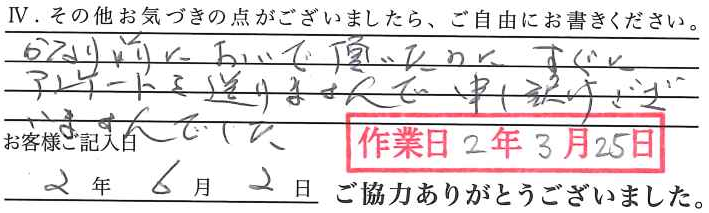 Ⅳ.その他お気づきの点がございましたら、ご自由にお書きください。
かなり前においで頂いたのに、すぐに
アンケートを送りませんで申し訳けござ
いませんでした
お客様ご記入日
作業日2年3月25日
2年6月2日 ご協力ありがとうございました。